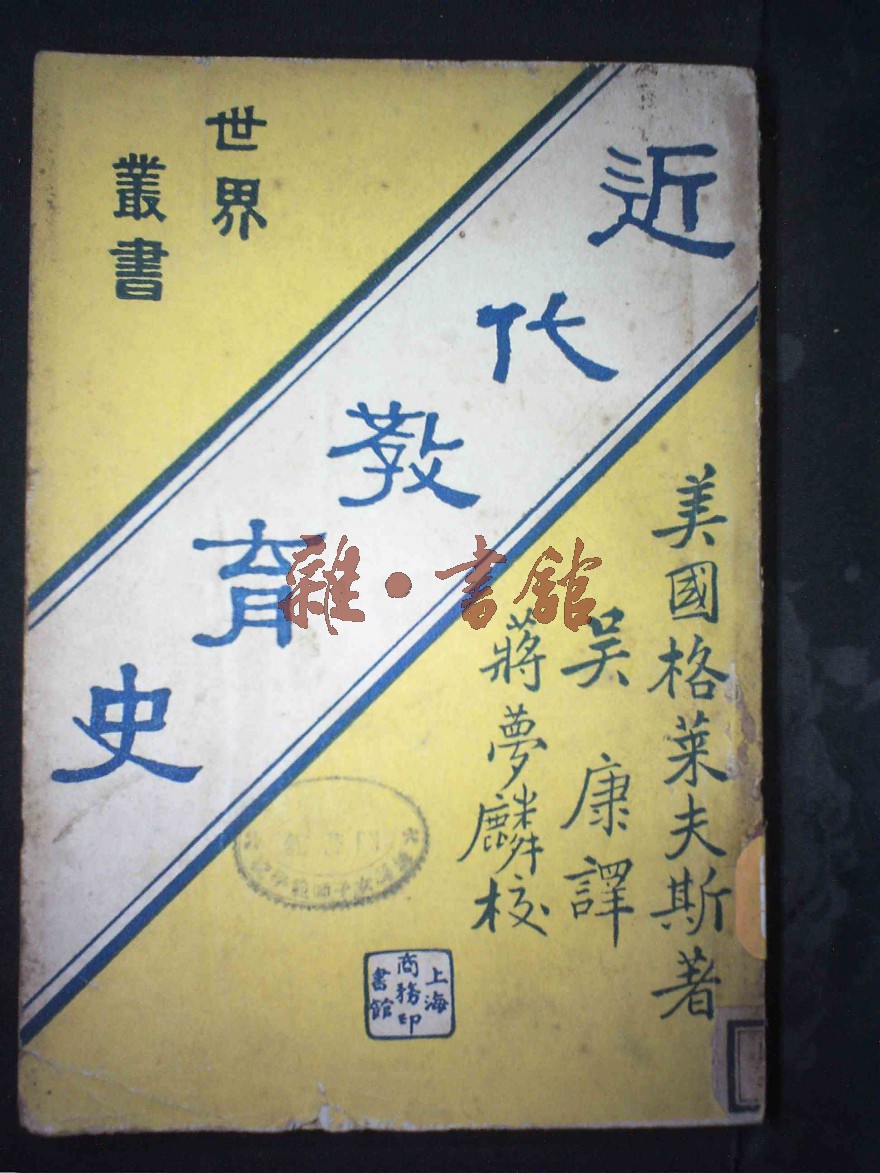 世界
叢書
近代教育史
美國格萊夫斯著
吳康譯
蔣夢麟校
上海
商務印
書館
雜·書館